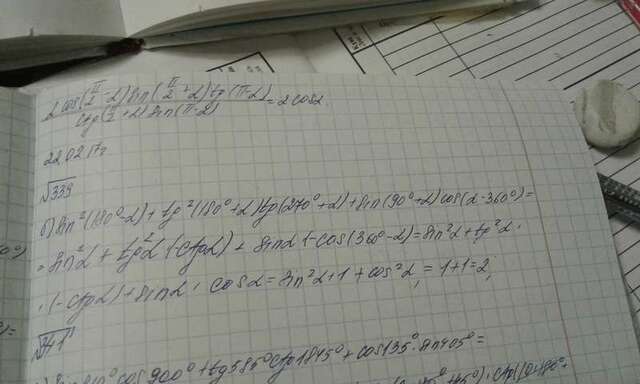 2 cos(π/2 - α) sin(π/2 + α) tg(π - α) / ctg(π/2 + α) sin(π - α) = 2 cos α
22 02 17г
√339
б) sin²(180° - α) + tg²(180° + α) tg(270° + α) + sin(90° + α) cos(α - 360°) =
= sin²α + tg²α · (-ctg α) + sin α · (-cos(360° - α) = sin²α + tg²α ·
· (-ctg α) + sin α · cos α = sin²α + 1 + cos²α = 1 + 1 = 2;
√341
cos 900° + tg 585° ctg 1845° + cos 135° · sin 405° =